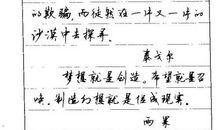 的欺骗，而徒然在一片又一片的
沙漠中去探寻。
泰戈尔
梦想就是创造。希望就是召
唤。制造幻想就是促成现实。
雨果